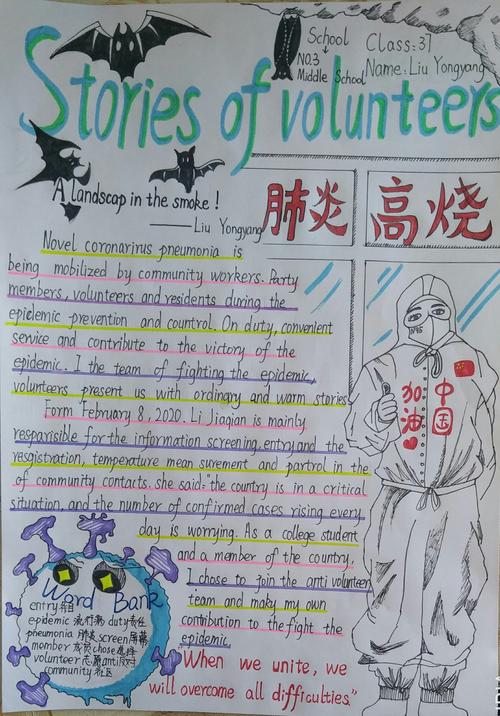 School
NO.3
Middle School
Class:37
Name: Liu Yongyang
Stories of volunteers
A landscap in the smoke!
——Liu Yongyang
肺炎
高烧
Novel coronarirus pneumonia is
being mobilized by community workers. Party
members, volunteers and residents during the
epidemic prevention and countrol. On duty, convenient
service and contribute to the victory of the
epidemic. I the team of fighting the epidemic,
volunteers present us with ordingry and warm stories.
Form February 8, 2020. Li Jiaqian is mainly
responsible for the information screening, entry and the
resgistration, temperature mean surement and partrol in the
of community contacts. She said:"the country is in a critical
situation, and the number of confirmed cases rising every
day is worrying. As a college student
and a member of the country,
I chose to join the anti volunteer
team and maky my own
contribution to the fight the
epidemic.
"When we unite, we
will overcome all difficulties."
N95
中国
加油
Word Bank
entry
epidemic 流行病 duty 责任
pneumonia 肺炎 screen 屏幕
member 成员 chose 选择
volunteer 志愿 anti 反对
community 社区